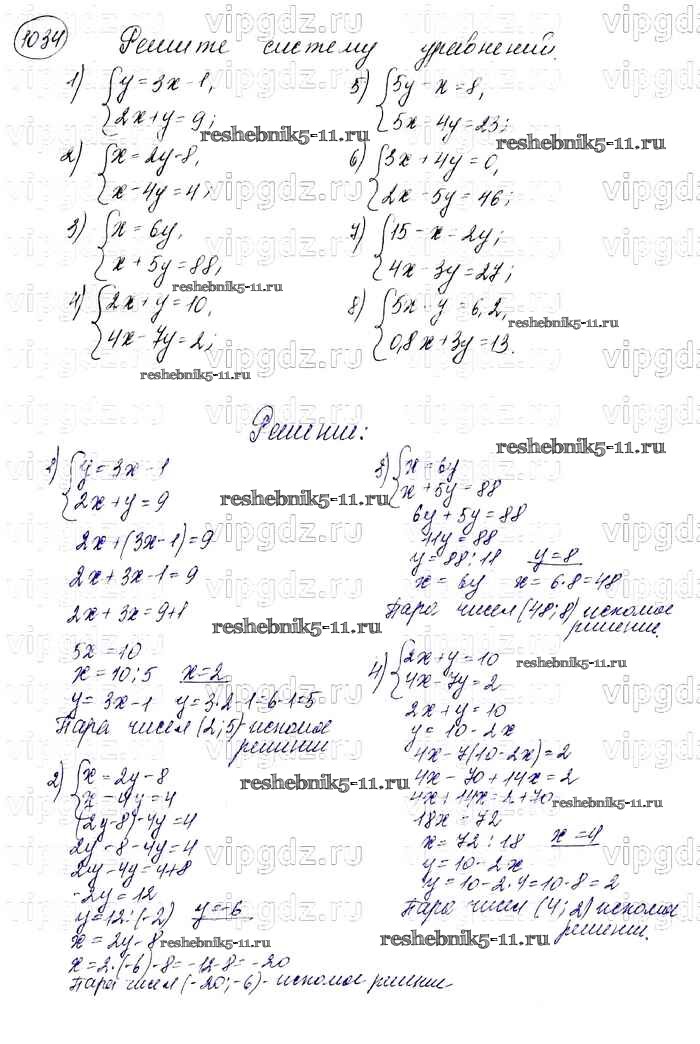 1034 Решите систему уравнений.
1) { y = 3x - 1,
2x + y = 9;
2) { x = 2y - 8,
x - 4y = 4;
3) { x = 6y,
x + 5y = 88,
4) { 2x + y = 10,
4x - 7y = 2;
5) { 5y - x = 8,
5x - 4y = 23;
6) { 3x + 4y = 0,
2x - 5y = 46;
7) { 15 - x - 2y;
4x - 3y = 27;
8) { 5x - y = 6,2,
0,8x + 3y = 13.
Решение:
1) { y = 3x - 1
2x + y = 9
2x + (3x - 1) = 9
2x + 3x - 1 = 9
2x + 3x = 9 + 1
5x = 10
x = 10 : 5 x = 2
y = 3x - 1 y = 3·2 - 1 = 6 - 1 = 5
Пара чисел (2; 5) - искомое
решение
2) { x = 2y - 8
x - 4y = 4
(2y - 8) - 4y = 4
2y - 8 - 4y = 4
2y - 4y = 4 + 8
-2y = 12
y = 12 : (-2) y = -6
x = 2y - 8
x = 2·(-6) - 8 = -12 - 8 = -20
Пара чисел (-20; -6) - искомое решение
3) { x = 6y
x + 5y = 88
6y + 5y = 88
11y = 88
y = 88 : 11 y = 8
x = 6y x = 6·8 = 48
Пара чисел (48; 8) искомое
решение.
4) { 2x + y = 10
4x - 7y = 2
2x + y = 10
y = 10 - 2x
4x - 7(10 - 2x) = 2
4x - 70 + 14x = 2
4x + 14x = 2 + 70
18x = 72
x = 72 : 18 x = 4
y = 10 - 2x
y = 10 - 2·4 = 10 - 8 = 2
Пара чисел (4; 2) искомое
решение.
vipgdz.ru
reshebnik5-11.ru